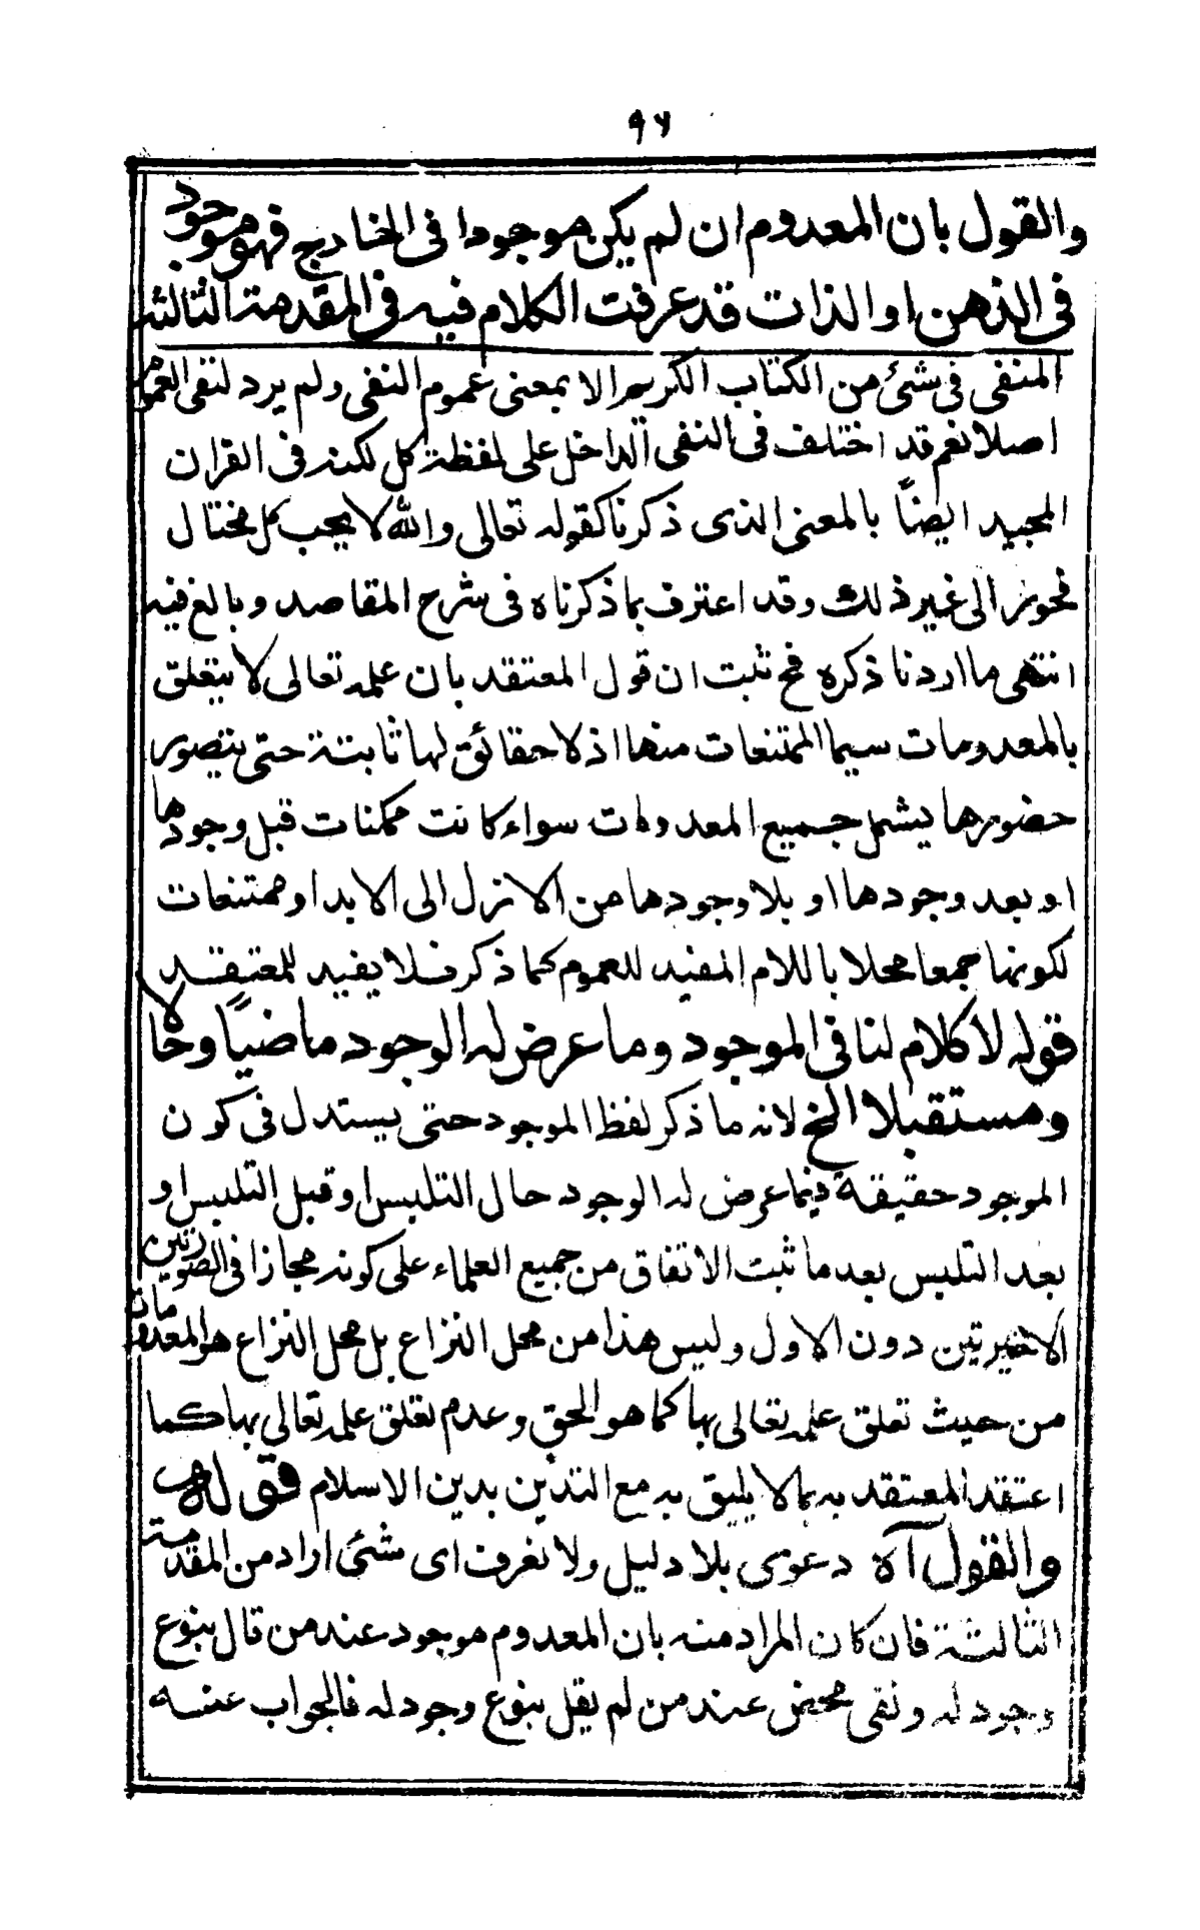 ٩٦
والقول بان المعدوم ان لم يكن موجودا فى الخارج فهو موجود
فى الذهن او الذات قد عرفت الكلام فيه فى المقدمة الثالثة
المنفى فى شئ من الكتاب الكريم الا بمعنى عموم النفى ولم يرد لنفى العموم
اصلا نعم قد اختلف فى النفى الداخل على لفظة كل لكنه فى القران
المجيد ايضًا بالمعنى الذى ذكرنا كقوله تعالى والله لا يحب كل مختال
فخور الى غير ذلك وقد اعترف بما ذكرناه فى شرح المقاصد وبالغ فيه
انتهى ما اردنا ذكره فح ثبت ان قول المعتقد بان علمه تعالى لا يتعلق
بالمعدومات سيما الممتنعات منها اذ لا حقائق لها ثابتة حتى يتصور
حضورها يشمل جميع المعدومات سواء كانت ممكنات قبل وجودها
او بعد وجودها او بلا وجودها من الازل الى الابد او ممتنعات
لكونها جمعا محلا باللام المفيد للعموم كما ذكر فلا يفيد للمعتقد
قوله لا كلام لنا فى الموجود وما عرض له الوجود ماضيًا وحالا
ومستقبلا الخ لانه ما ذكر لفظ الموجود حتى يستدل فى كون
الموجود حقيقة فيما عرض له الوجود حال التلبس او قبل التلبس او
بعد التلبس بعد ما ثبت الاتفاق من جميع العلماء على كونه مجازا فى الصورتين
الاخيرتين دون الاول وليس هذا من محل النزاع بل محل النزاع هو المعدومات
من حيث تعلق علمه تعالى بها كما هو الحق وعدم تعلق علمه تعالى بها كما
اعتقد المعتقد به بما لا يليق به مع التدين بدين الاسلام قوله
والقول آه دعوى بلا دليل ولا نعرف اى شئ اراد من المقدمة
الثالثة فان كان المراد منه بان المعدوم موجود عند من قال بنوع
وجود له ونفى محض عند من لم يقل بنوع وجود له فالجواب عنه